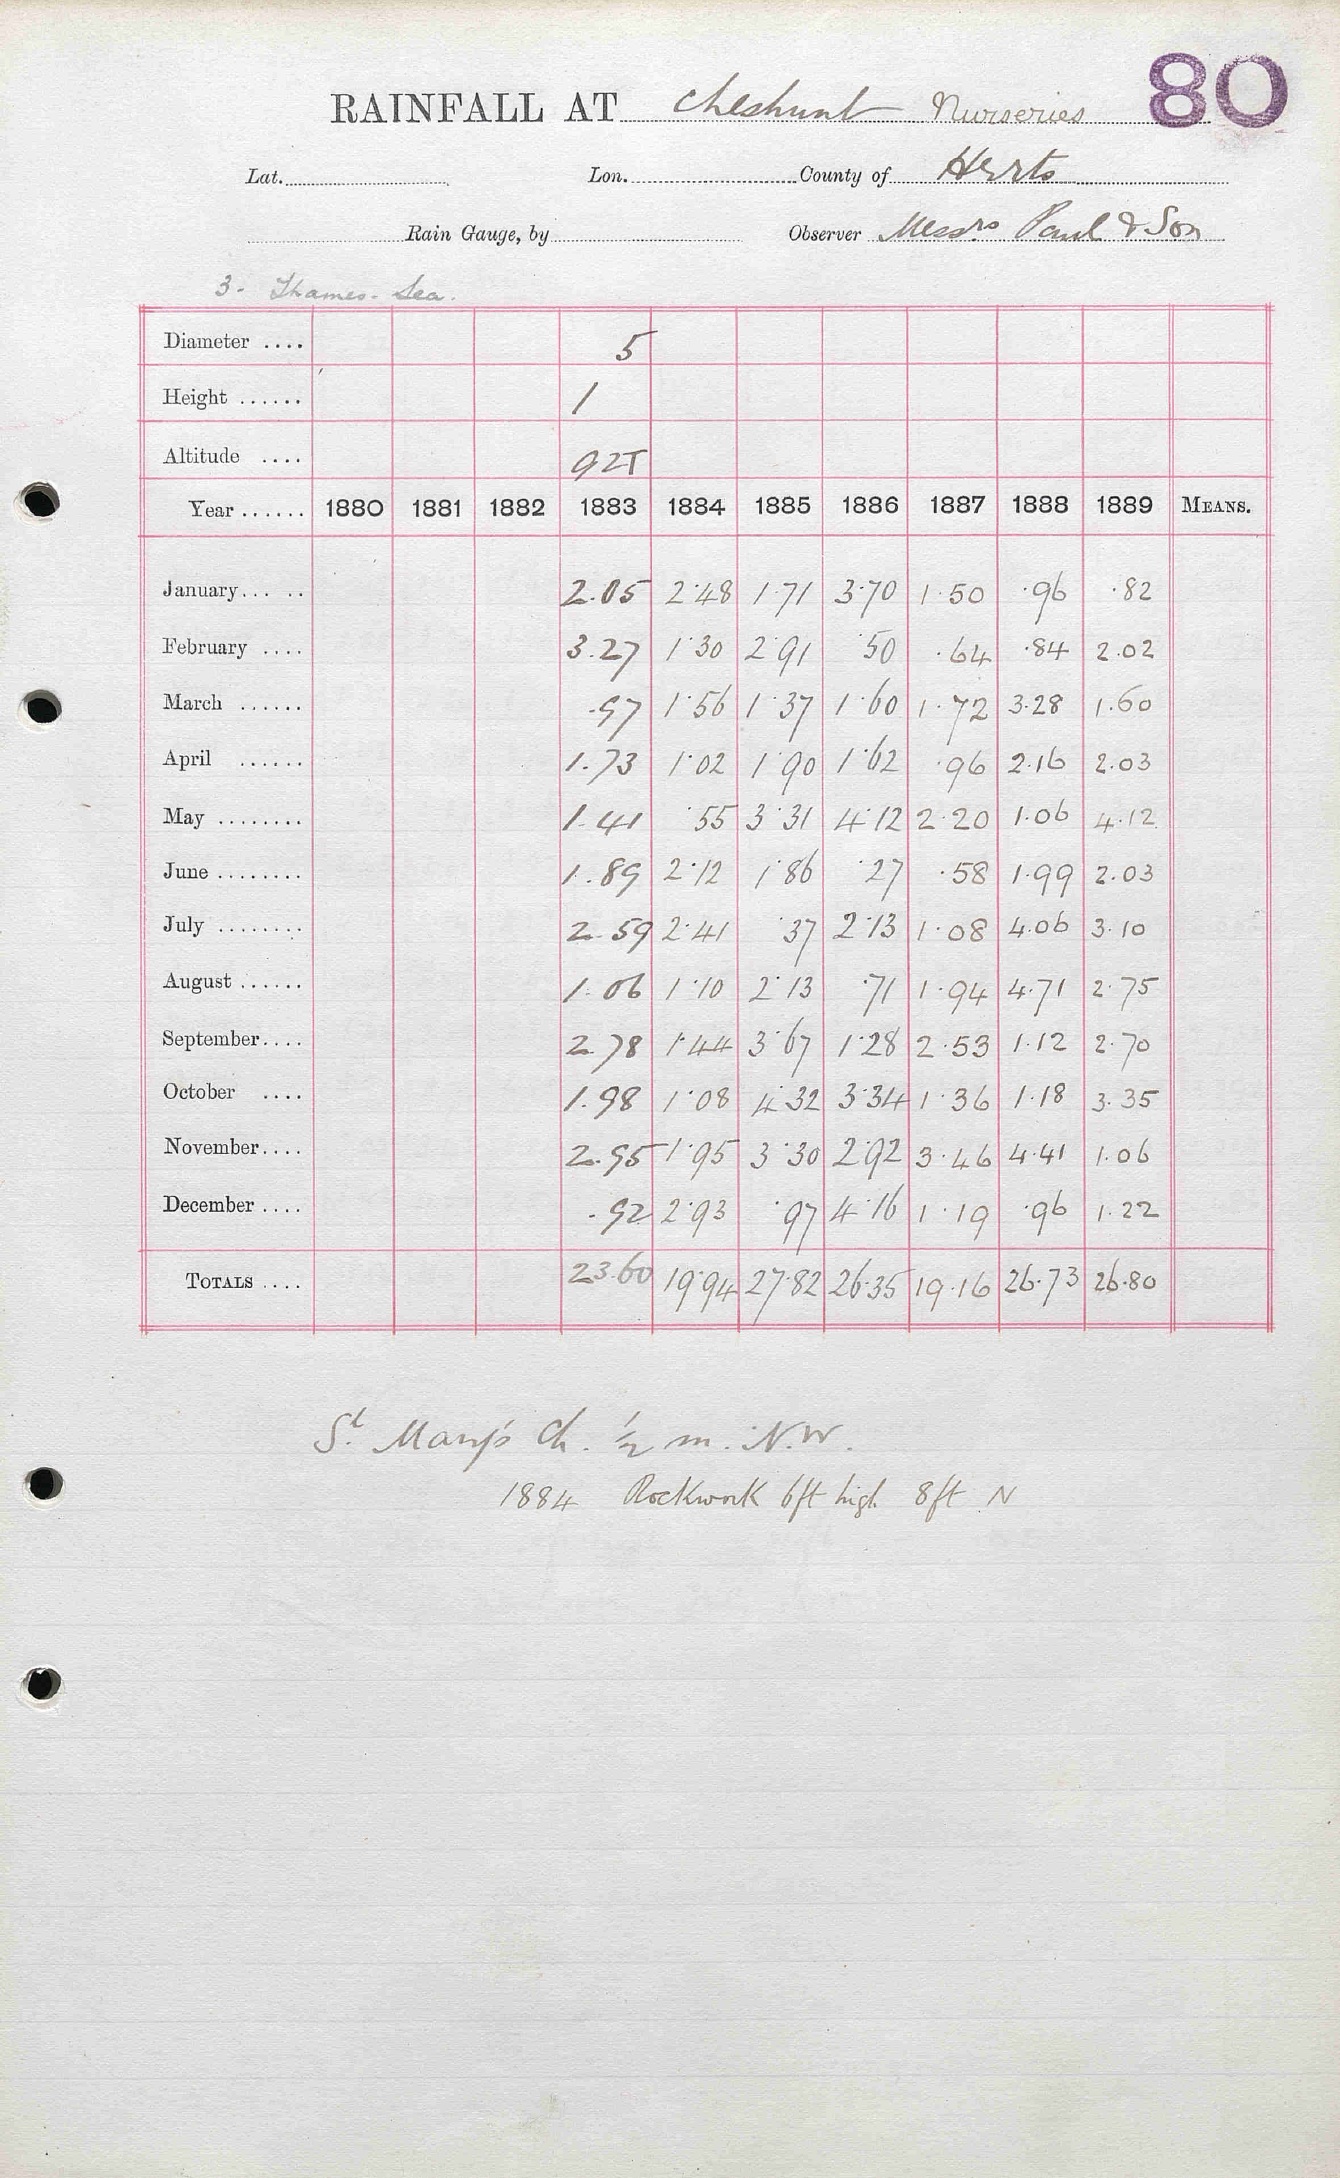 80
RAINFALL AT Cheshunt Nurseries
Lat. Lon. County of Herts
Rain Gauge, by Observer Messrs Paul & Son
3. Thames-Sea.
Diameter .... 5
Height ...... 1
Altitude .... 92T
Year ...... 1880 1881 1882 1883 1884 1885 1886 1887 1888 1889 MEANS.
January... .. 2.05 2.48 1.71 3.70 1.50 .96 .82
February .... 3.27 1.30 2.91 .50 .64 .84 2.02
March ...... .97 1.56 1.37 1.60 1.72 3.28 1.60
April ...... 1.73 1.02 1.90 1.62 .96 2.16 2.03
May ........ 1.41 .55 3.31 4.12 2.20 1.06 4.12
June ........ 1.89 2.12 1.86 .27 .58 1.99 2.03
July ........ 2.59 2.41 .37 2.13 1.08 4.06 3.10
August ...... 1.06 1.10 2.13 .71 1.94 4.71 2.75
September.... 2.78 1.44 3.67 1.28 2.53 1.12 2.70
October .... 1.98 1.08 4.32 3.34 1.36 1.18 3.35
November.... 2.95 1.95 3.30 2.92 3.46 4.41 1.06
December .... .92 2.93 .97 4.16 1.19 .96 1.22
TOTALS .... 23.60 19.94 27.82 26.35 19.16 26.73 26.80
St. Mary's Ch. 1/2 m. N.W.
1884 Rockwork 6ft high 8ft N